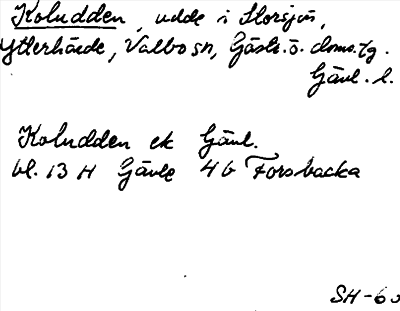 Koludden, udde i Storsjön,
Ytterhärde, Valbo sn, Gästr. ö. doms. tg.
Gävl. l.
Koludden ek Gävl.
bl. 13 H Gävle 4 b Forsbacka
SH-60